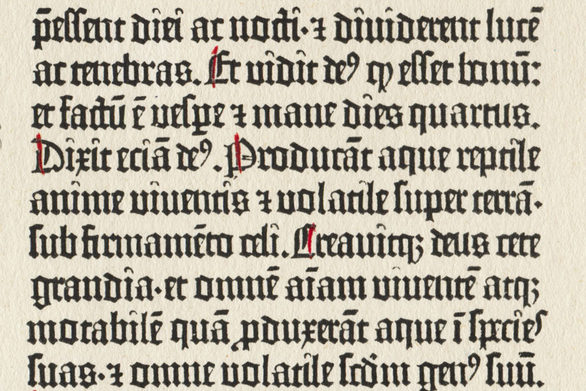 p̄essent diei ac nocti· ⁊ diuiderent lucē
ac tenebras. Et vidit deꝰ ꝙ esset bonū:
et factū ē vespe ⁊ mane dies quartus.
Dixit eciā deꝰ. Producāt aque reptile
anime viuentis ⁊ volatile super terrā·
sub firmamēto celi. Creauitqꝫ deus cete
grandia· et omnē aīam viuentē atqꝫ
motabilē quā ꝓduxerāt aque ī species
suas· ⁊ omne volatile scdm̄ genꝰ suū.